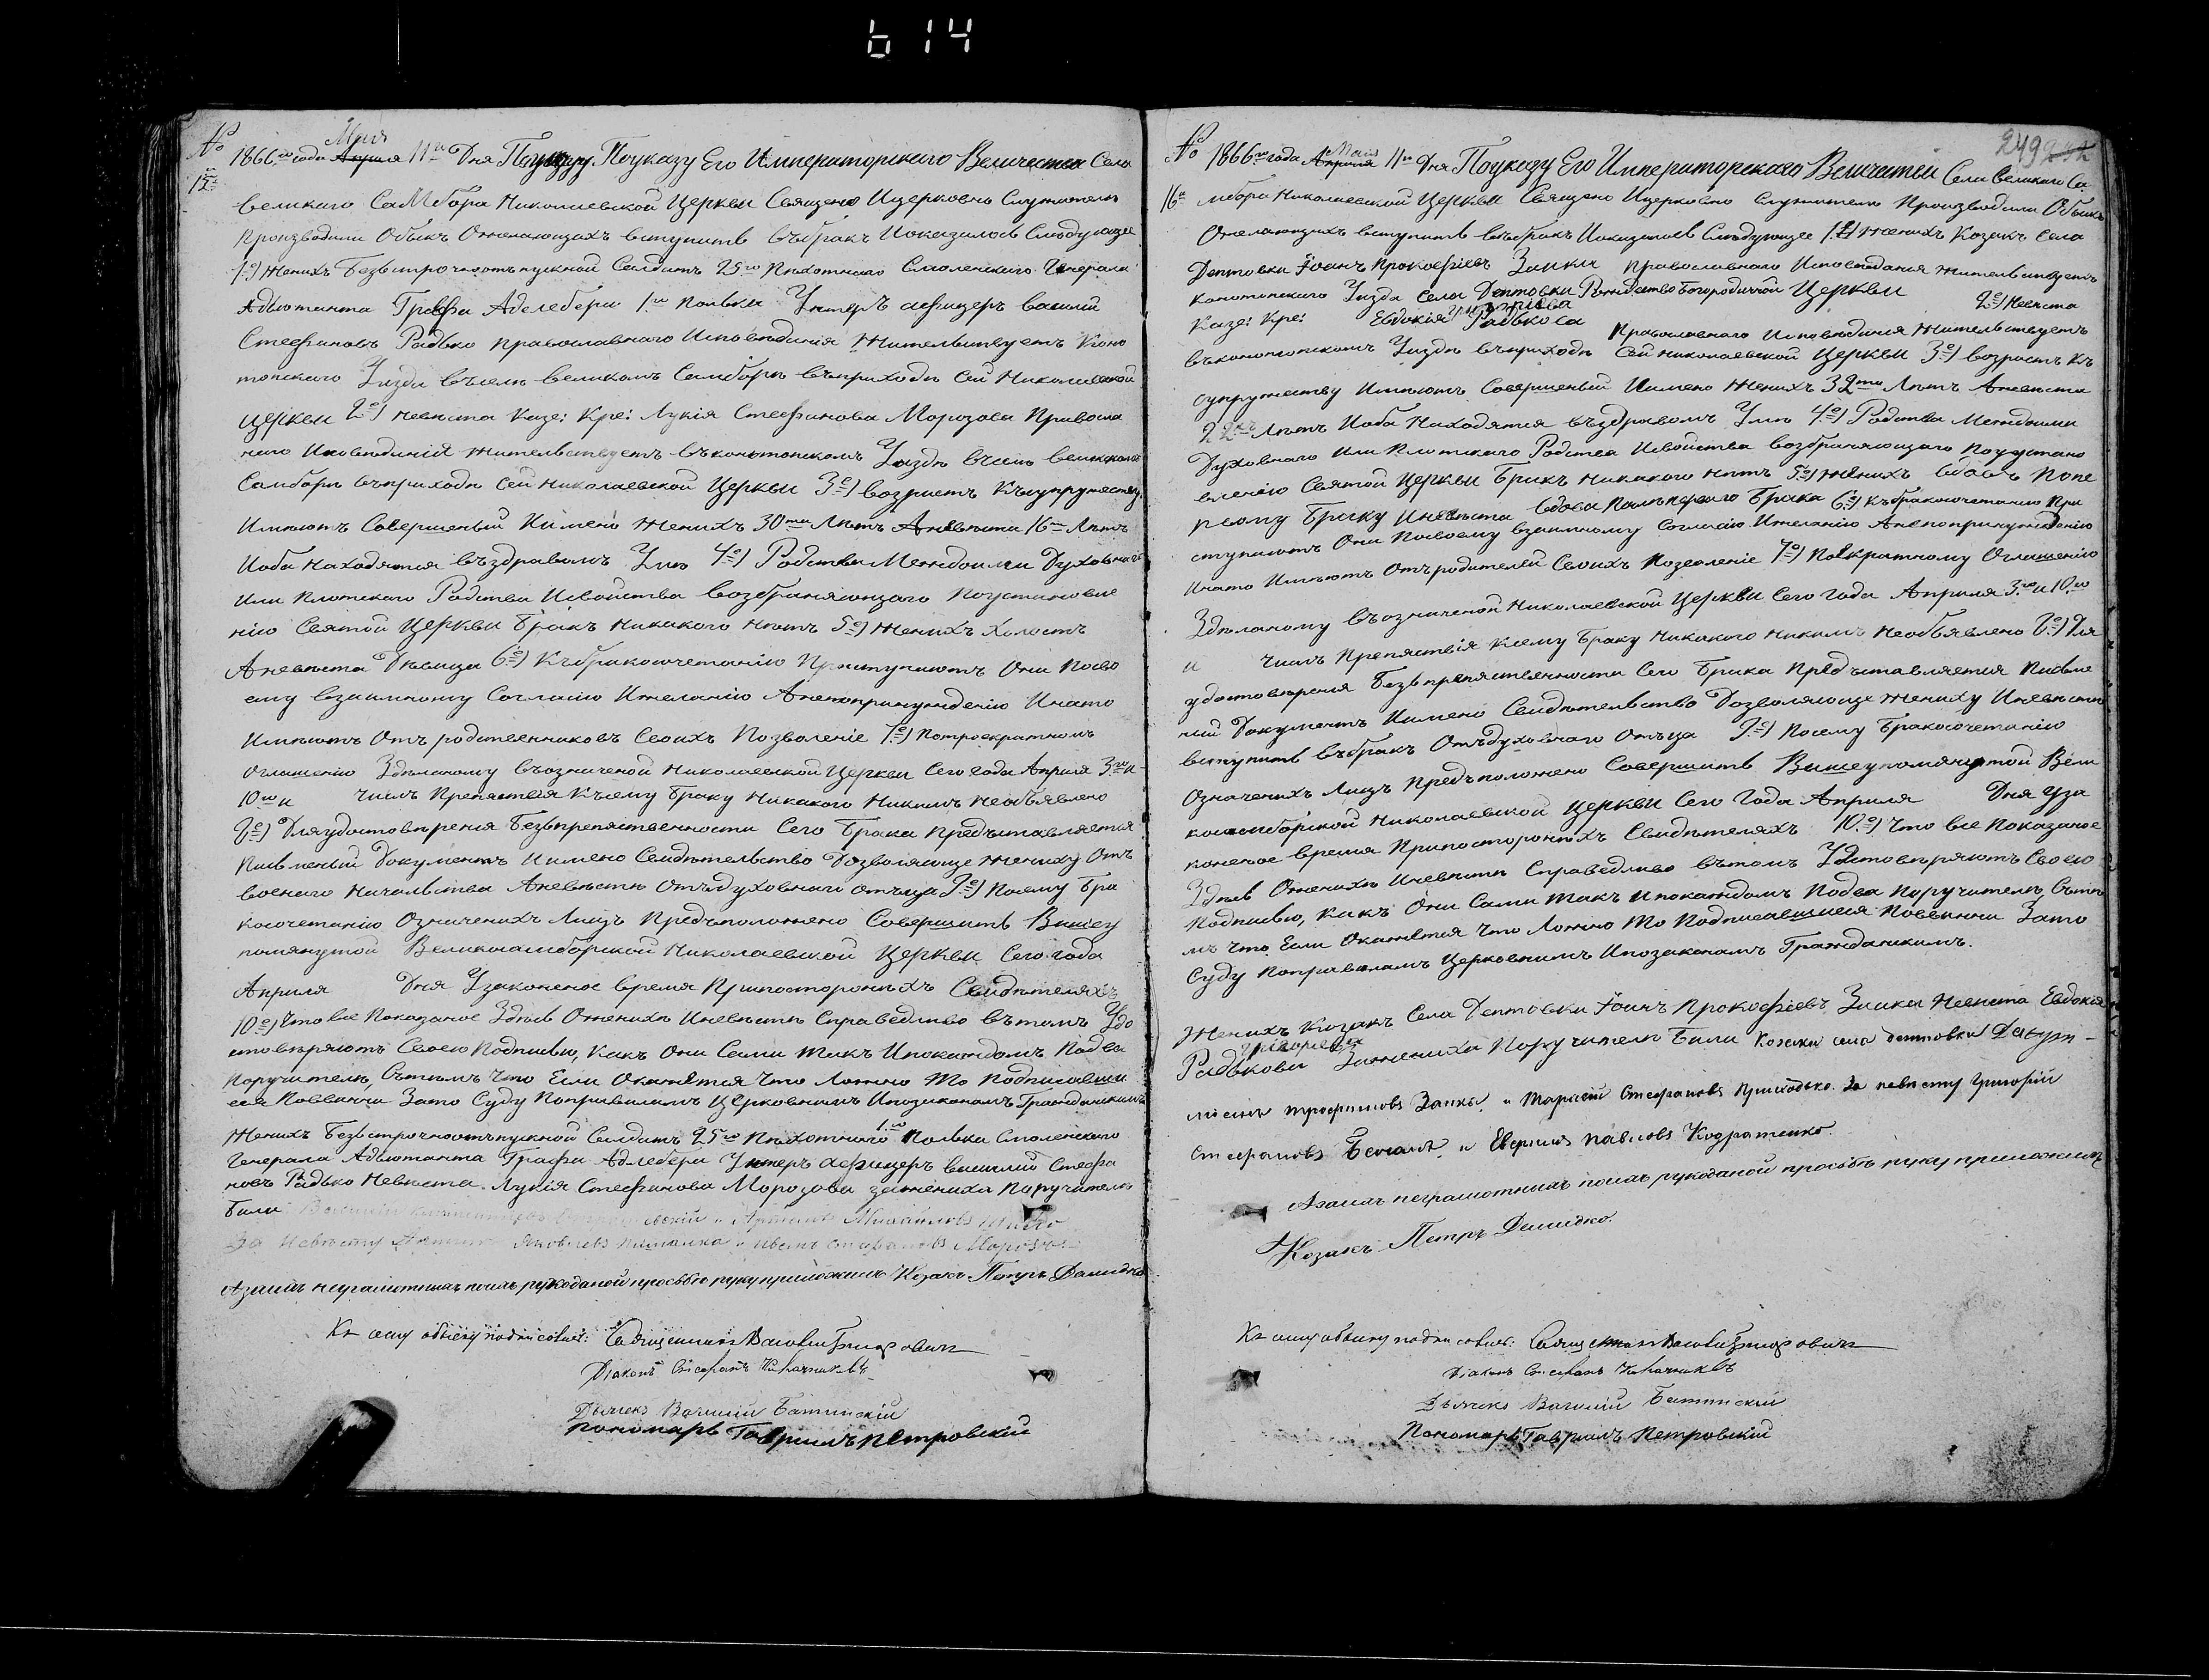 614
№ 1866го года Апреля Мая 11го Дня Поуказу Поуказу Его Императорскаго Величества Села
15й великаго Самбора Николаевской Церкви Священо Ицерковно Служители
Производили Обыкъ Ожелающихъ вступить въбракъ Иоказалось Следующее
1е) Женихъ Безъсрочноотъпускной Салдатъ 25го Пехотнаго Смоленскаго Генерала
Адьютанта Графа Аделеберга 1го Полька Унтеръ афицеръ василий
Стефановъ Радько православнаго Исповеданія Жительствуетъ Коно
топскаго Уезда въселе великомъ Самборе въприходе Сей Николаевской
Церкви 2е) невеста Казе: Кре: Лукія Стефанова Морозова Правосла
наго Исповеданія Жительствуетъ въконотопскомъ Уезде въселе великомъ
Самборе въприходе Сей Николаевской Церкви 3е) возрастъ Късупружеству
Имеютъ Совершеный Именo Женихъ 30ти Летъ Аневеста 16ти Летъ
Иоба Находятся въздравомъ Уме 4е) Родства Междоими Духовнаго
Или Плотскаго Родства Исвойства возбраняющаго Поустановле
нію Святой Церкви Бракъ Никакого Нетъ 5е) Женихъ Холостъ
Аневеста Девица 6е) Къбракосочетанію Приступаютъ Они Посво
ему взаимному Согласію Ижеланію Анепопринужденію Инато
Имеютъ Отъ родственниковъ Своихъ Позволеніе 7е) Потроекратномъ
Оглашенію Зделаному въозначеной Николаевской Церкви Сего года Апреля 3го и
10го и чиелъ Препяствія Къзему Браку Никакого Никимъ Необъявлено
8е) Дляудостовереня Безъпрепяственности Сего Брака Предъставляется
Писъменый Документъ Именo Свидетельство Дозволяюще Жениху Отъ
военаго Начальства Аневесте Отъдуховнаго отъца 9е) Посему Бра
косочетанію Означенихъ Лицъ Предъположено Совершить Вышеу
помянутой Великосамборской Николаевской Церкви Сего года
Апреля Дня Узаконеное время Припостороннихъ Свидетеляхъ
10е) Что все Показаное Здесь Оженихе Иневесте Справедливо вътомъ Удо
стоверяютъ Своею Подписью, Какъ Они Сами Такъ Ипокаждомъ Подва
Поручителе, Сътемъ Что Если Окажется Что Ложно То Подписавши
еся Повинны Зато Суду Поправиламъ Церковнимъ Ипозаконамъ Гражданскимъ
Женихъ Безъсрочноотъпускной Салдатъ 25го Пехотнаго 1го Полька Смоленскаго
Генерала Адьютанта Графа Адлебера Унтеръ афицеръ василий Стефа
новъ Радько Невеста Лукія Стефанова Морозова зажениха Поручители
Били Артемъ Михайловъ
За Невесту Яковлевъ Иванъ Стефановъ Морозъ
Азаихъ неграмотныхъ поихъ рукоданой просьбе руку приложилъ Козакъ Петръ Демидко
Къ сему обыску подписались: Священникъ Василий Григоровичъ
Діаконъ Стефанъ
Дьячекъ Василий Батинский
Пономарь Гавриилъ Петровскій
249
№ 1866го года Апреля Мая 11го Дня Поуказу Его Императорскаго Величества Села Великаго Са
16й мбора Николаевской Церкви Священо Ицерковно Служители Производили Обыкъ
Ожелающихъ вступить въбракъ Иоказалось Следующее 1е) Женихъ Козакъ Села
Дептовки Іоанъ Прокофіевъ Заика Православнаго Исповеданія Жительствуетъ
Конотопскаго Уезда Села Дептовки Рождество Богородичной Церкви 2е) Невеста
Казе: Кре: Евдокія Григоріева Радькова Православнаго Исповеданія Жительствуетъ
въконотопскомъ Уезде въприходе Сей Николаевской Церкви 3е) возрастъ Къ
супружеству Имеютъ Совершеный Именo Женихъ 32ти Летъ Аневеста
22хъ Летъ Иоба Находятся въздравомъ Уме 4е) Родства Междоими
Духовнаго Или Плотскаго Родства Исвойства возбраняющаго Поустано
вленію Святой Церкви Бракъ Никакого Нетъ 5е) Женихъ вдовъ Попе
рвому Браку Иневеста вдова Послеперваго Брака 6е) Къбракосочетанію При
ступаютъ Они Посвоему взаимному Согласію Ижеланію Анепопринужденію
Инато Имеютъ Отъродителей Своихъ Позволеніе 7е) По2кратному Оглашенію
Зделаному въозначеной Николаевской Церкви Сего Года Апреля 3го и 10го
и чиелъ Препяствія Ксему Браку Никакого Никимъ Необъявлено 8е) Для
удостовереня Безъпрепяственности Сего Брака Предъставляется Писъме
ный Документъ Именo Свидетельство Дозволяюще Жениху Иневесте
вступить въбракъ Отъдуховнаго Отъца 9е) Посему Бракосочетанію
Означенихъ Лицъ Предъположено Совершить Вишеупомянутой Вели
косамборской Николаевской Церкви Сего Года Апреля Дня Уза
коненое время Припостороннихъ Свидетеляхъ 10е) Что все Показаное
Здесь Оженихе Иневесте Справедливо вътомъ Удостоверяютъ Своею
Подписью, Какъ Они Сами Такъ Ипокаждомъ Подва Поручителе, Съте
мъ Что Если Окажется Что Ложно То Подписавшиеся Повинны Зато
Суду Поправиламъ Церковнимъ Ипозаконамъ Гражданскимъ.
Женихъ Козакъ Села Дептовки Іоанъ Прокофіевъ Заика Невеста Евдокія
Григорьева Радькова Зажениха Поручители Били Козаки села дептовки
Трофимовъ Заика, и Тарасій Стефановъ Приходько. За невесту Григорій
Стефановъ и Павловъ Кодратенко.
Азаихъ неграмотныхъ поихъ рукоданой просьбе руку приложилъ
Козакъ Петръ Демидко.
Къ сему обыску подписались: Священникъ Василий Григоровичъ
Діаконъ Стефанъ
Дьячекъ Василий Батинский
Пономарь Гавриилъ Петровскій